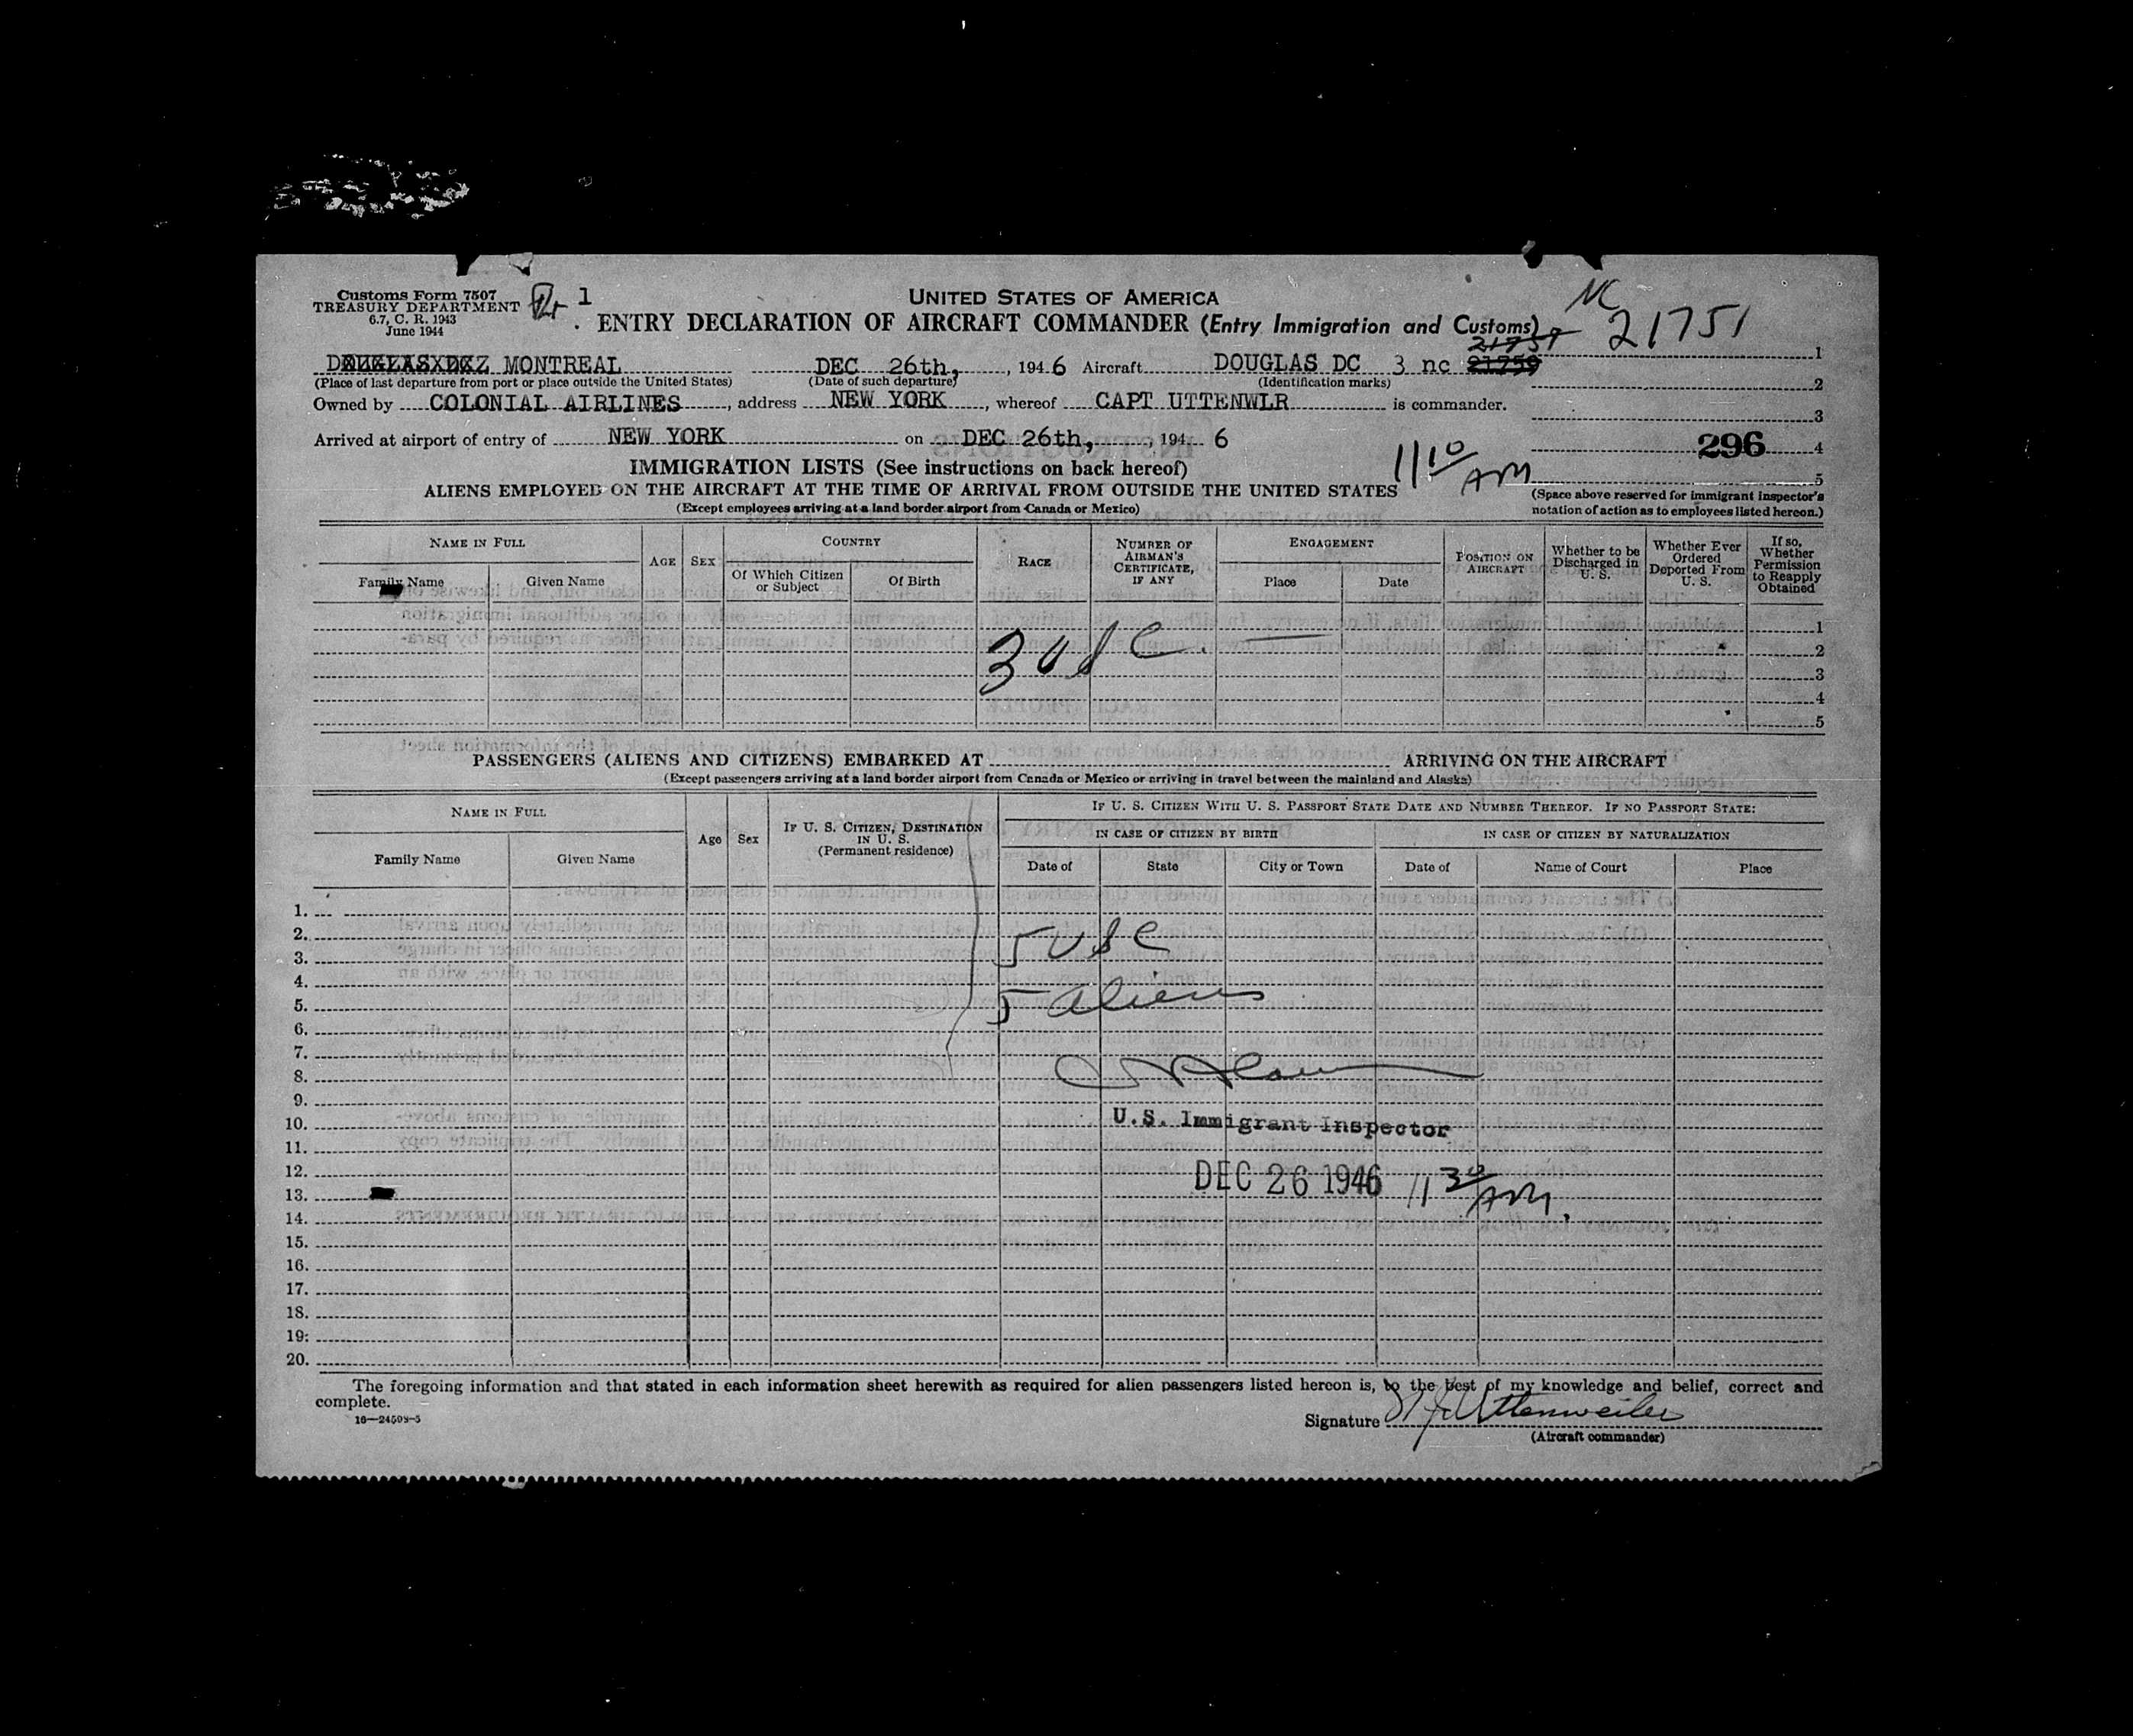 Customs Form 7507
TREASURY DEPARTMENT
6.7, C. R. 1943
June 1944
1
UNITED STATES OF AMERICA
NC 21751
ENTRY DECLARATION OF AIRCRAFT COMMANDER (Entry Immigration and Customs)
21751
MONTREAL DEC 26th, 1946 Aircraft DOUGLAS DC 3 nc 21759 1
(Place of last departure from port or place outside the United States) (Date of such departure) (Identification marks) 2
Owned by COLONIAL AIRLINES, address NEW YORK, whereof CAPT UTTENWLR is commander. 3
Arrived at airport of entry of NEW YORK on DEC 26th, 194 6 296 4
11 10 AM 5
IMMIGRATION LISTS (See instructions on back hereof)
ALIENS EMPLOYED ON THE AIRCRAFT AT THE TIME OF ARRIVAL FROM OUTSIDE THE UNITED STATES
(Except employees arriving at a land border airport from Canada or Mexico)
(Space above reserved for immigrant inspector's
notation of action as to employees listed hereon.)
NAME IN FULL AGE SEX COUNTRY RACE NUMBER OF AIRMAN'S CERTIFICATE, IF ANY ENGAGEMENT POSITION ON AIRCRAFT Whether to be Discharged in U. S. Whether Ever Ordered Deported From U. S. If so, Whether Permission to Reapply Obtained
Family Name Given Name Of Which Citizen or Subject Of Birth Place Date
1
3 USC. 2
3
4
5
PASSENGERS (ALIENS AND CITIZENS) EMBARKED AT ARRIVING ON THE AIRCRAFT
(Except passengers arriving at a land border airport from Canada or Mexico or arriving in travel between the mainland and Alaska)
NAME IN FULL Age Sex IF U. S. CITIZEN, DESTINATION IN U. S. (Permanent residence) IF U. S. CITIZEN WITH U. S. PASSPORT STATE DATE AND NUMBER THEREOF. IF NO PASSPORT STATE:
IN CASE OF CITIZEN BY BIRTH IN CASE OF CITIZEN BY NATURALIZATION
Family Name Given Name Date of State City or Town Date of Name of Court Place
1.
2.
3. 5 USC
4.
5. 5 aliens
6.
7.
8.
9.
10. U.S. Immigrant Inspector
11.
12.
13. DEC 26 1946 11 30 AM.
14.
15.
16.
17.
18.
19.
20.
The foregoing information and that stated in each information sheet herewith as required for alien passengers listed hereon is, to the best of my knowledge and belief, correct and
complete.
16—24508-5
Signature Uttenweiler
(Aircraft commander)